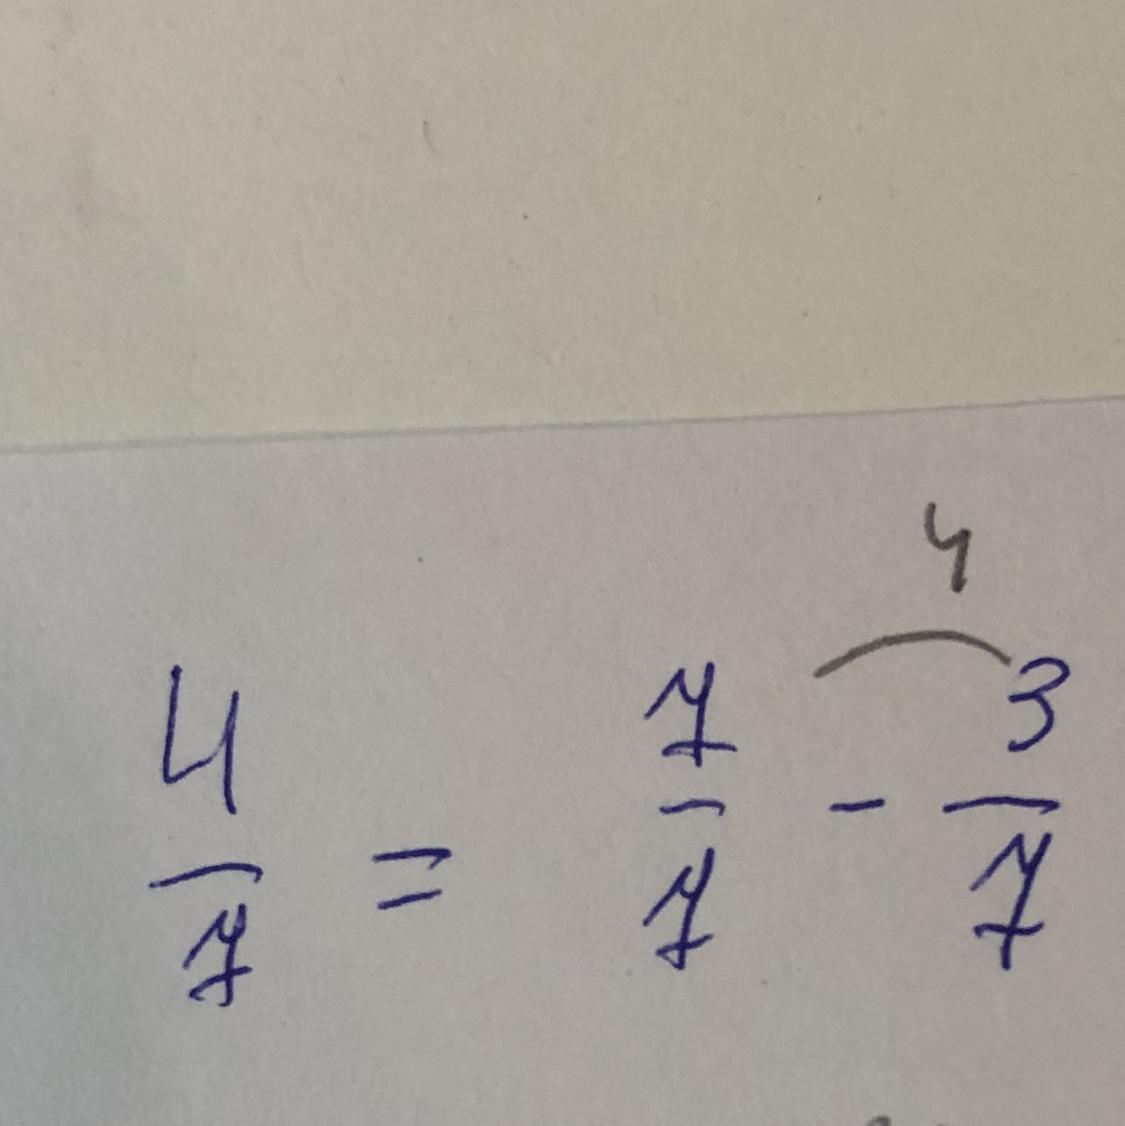 4
4/7 = 7/7 - 3/7